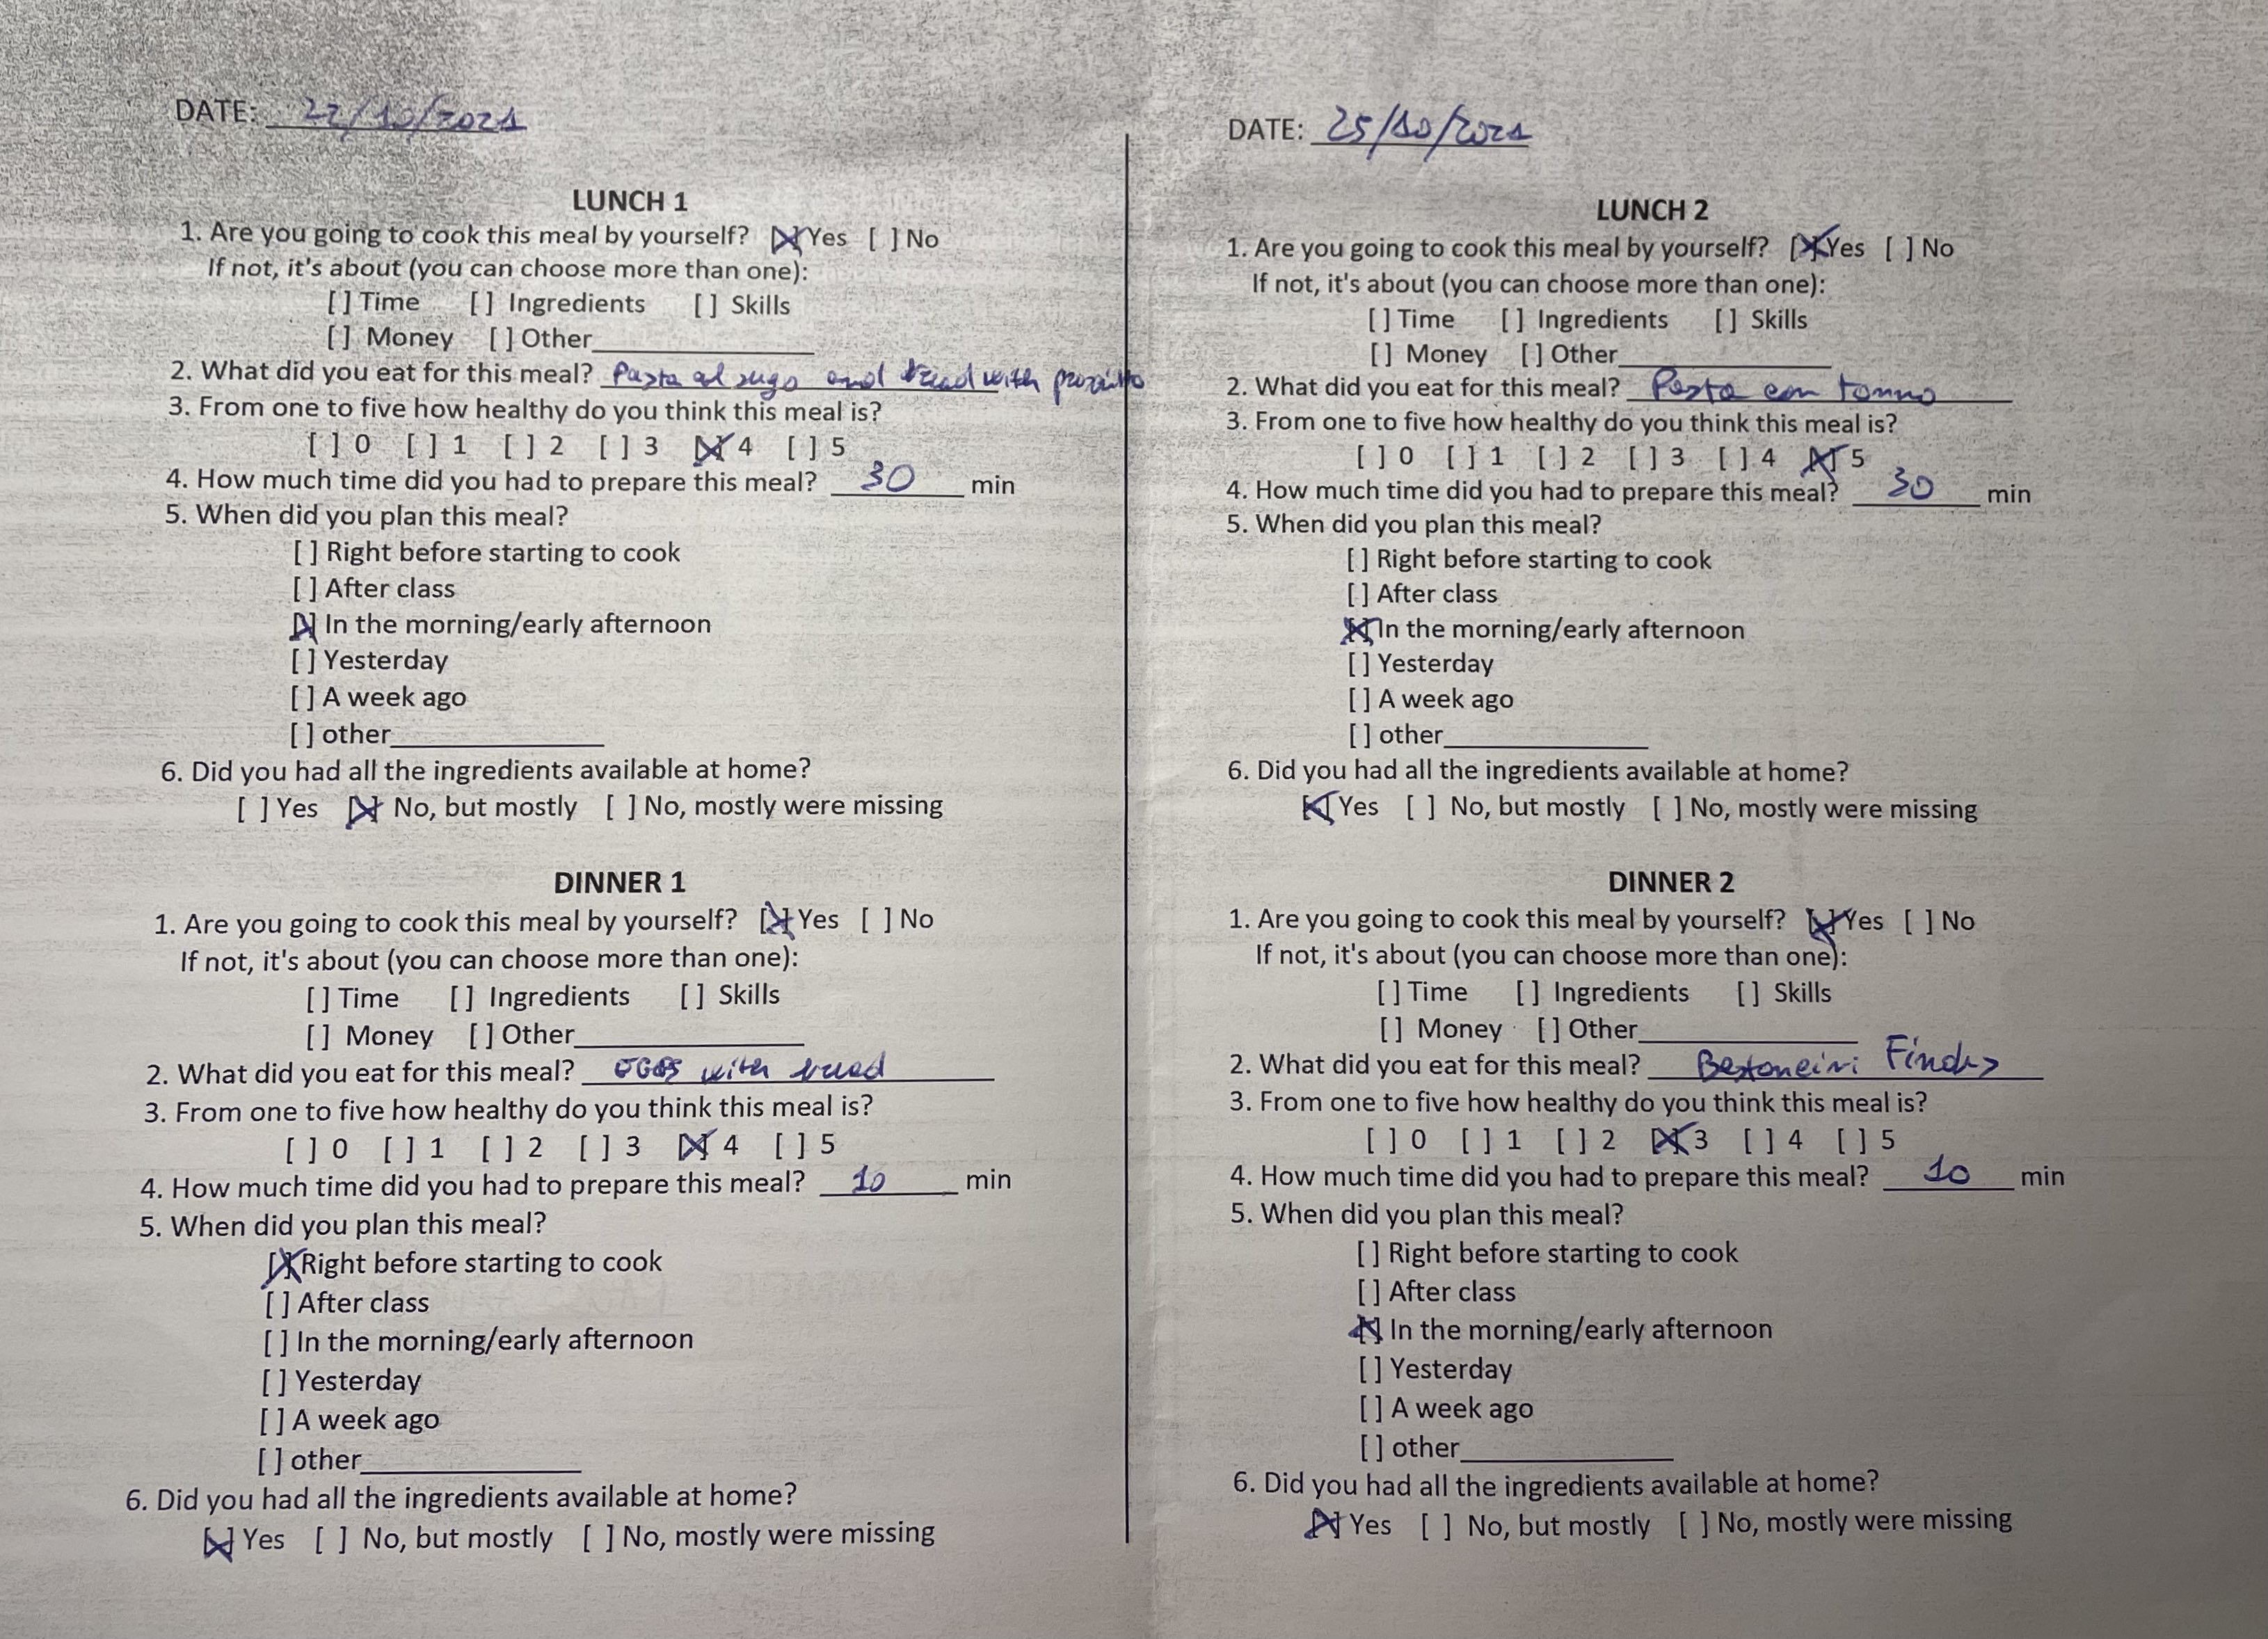 DATE: 22/10/2021
LUNCH 1
1. Are you going to cook this meal by yourself? [X] Yes [ ] No
If not, it's about (you can choose more than one):
[ ] Time [ ] Ingredients [ ] Skills
[ ] Money [ ] Other____________
2. What did you eat for this meal? Pasta al sugo and bread with prosciutto
3. From one to five how healthy do you think this meal is?
[ ] 0 [ ] 1 [ ] 2 [ ] 3 [X] 4 [ ] 5
4. How much time did you had to prepare this meal? 30 min
5. When did you plan this meal?
[ ] Right before starting to cook
[ ] After class
[X] In the morning/early afternoon
[ ] Yesterday
[ ] A week ago
[ ] other____________
6. Did you had all the ingredients available at home?
[ ] Yes [X] No, but mostly [ ] No, mostly were missing
DINNER 1
1. Are you going to cook this meal by yourself? [X] Yes [ ] No
If not, it's about (you can choose more than one):
[ ] Time [ ] Ingredients [ ] Skills
[ ] Money [ ] Other____________
2. What did you eat for this meal? EGGS with bread
3. From one to five how healthy do you think this meal is?
[ ] 0 [ ] 1 [ ] 2 [ ] 3 [X] 4 [ ] 5
4. How much time did you had to prepare this meal? 10 min
5. When did you plan this meal?
[X] Right before starting to cook
[ ] After class
[ ] In the morning/early afternoon
[ ] Yesterday
[ ] A week ago
[ ] other____________
6. Did you had all the ingredients available at home?
[X] Yes [ ] No, but mostly [ ] No, mostly were missing
DATE: 25/10/2021
LUNCH 2
1. Are you going to cook this meal by yourself? [X] Yes [ ] No
If not, it's about (you can choose more than one):
[ ] Time [ ] Ingredients [ ] Skills
[ ] Money [ ] Other____________
2. What did you eat for this meal? Pasta con tonno
3. From one to five how healthy do you think this meal is?
[ ] 0 [ ] 1 [ ] 2 [ ] 3 [ ] 4 [X] 5
4. How much time did you had to prepare this meal? 30 min
5. When did you plan this meal?
[ ] Right before starting to cook
[ ] After class
[X] In the morning/early afternoon
[ ] Yesterday
[ ] A week ago
[ ] other____________
6. Did you had all the ingredients available at home?
[X] Yes [ ] No, but mostly [ ] No, mostly were missing
DINNER 2
1. Are you going to cook this meal by yourself? [X] Yes [ ] No
If not, it's about (you can choose more than one):
[ ] Time [ ] Ingredients [ ] Skills
[ ] Money [ ] Other____________
2. What did you eat for this meal? Bastoncini Findus
3. From one to five how healthy do you think this meal is?
[ ] 0 [ ] 1 [ ] 2 [X] 3 [ ] 4 [ ] 5
4. How much time did you had to prepare this meal? 10 min
5. When did you plan this meal?
[ ] Right before starting to cook
[ ] After class
[X] In the morning/early afternoon
[ ] Yesterday
[ ] A week ago
[ ] other____________
6. Did you had all the ingredients available at home?
[X] Yes [ ] No, but mostly [ ] No, mostly were missing